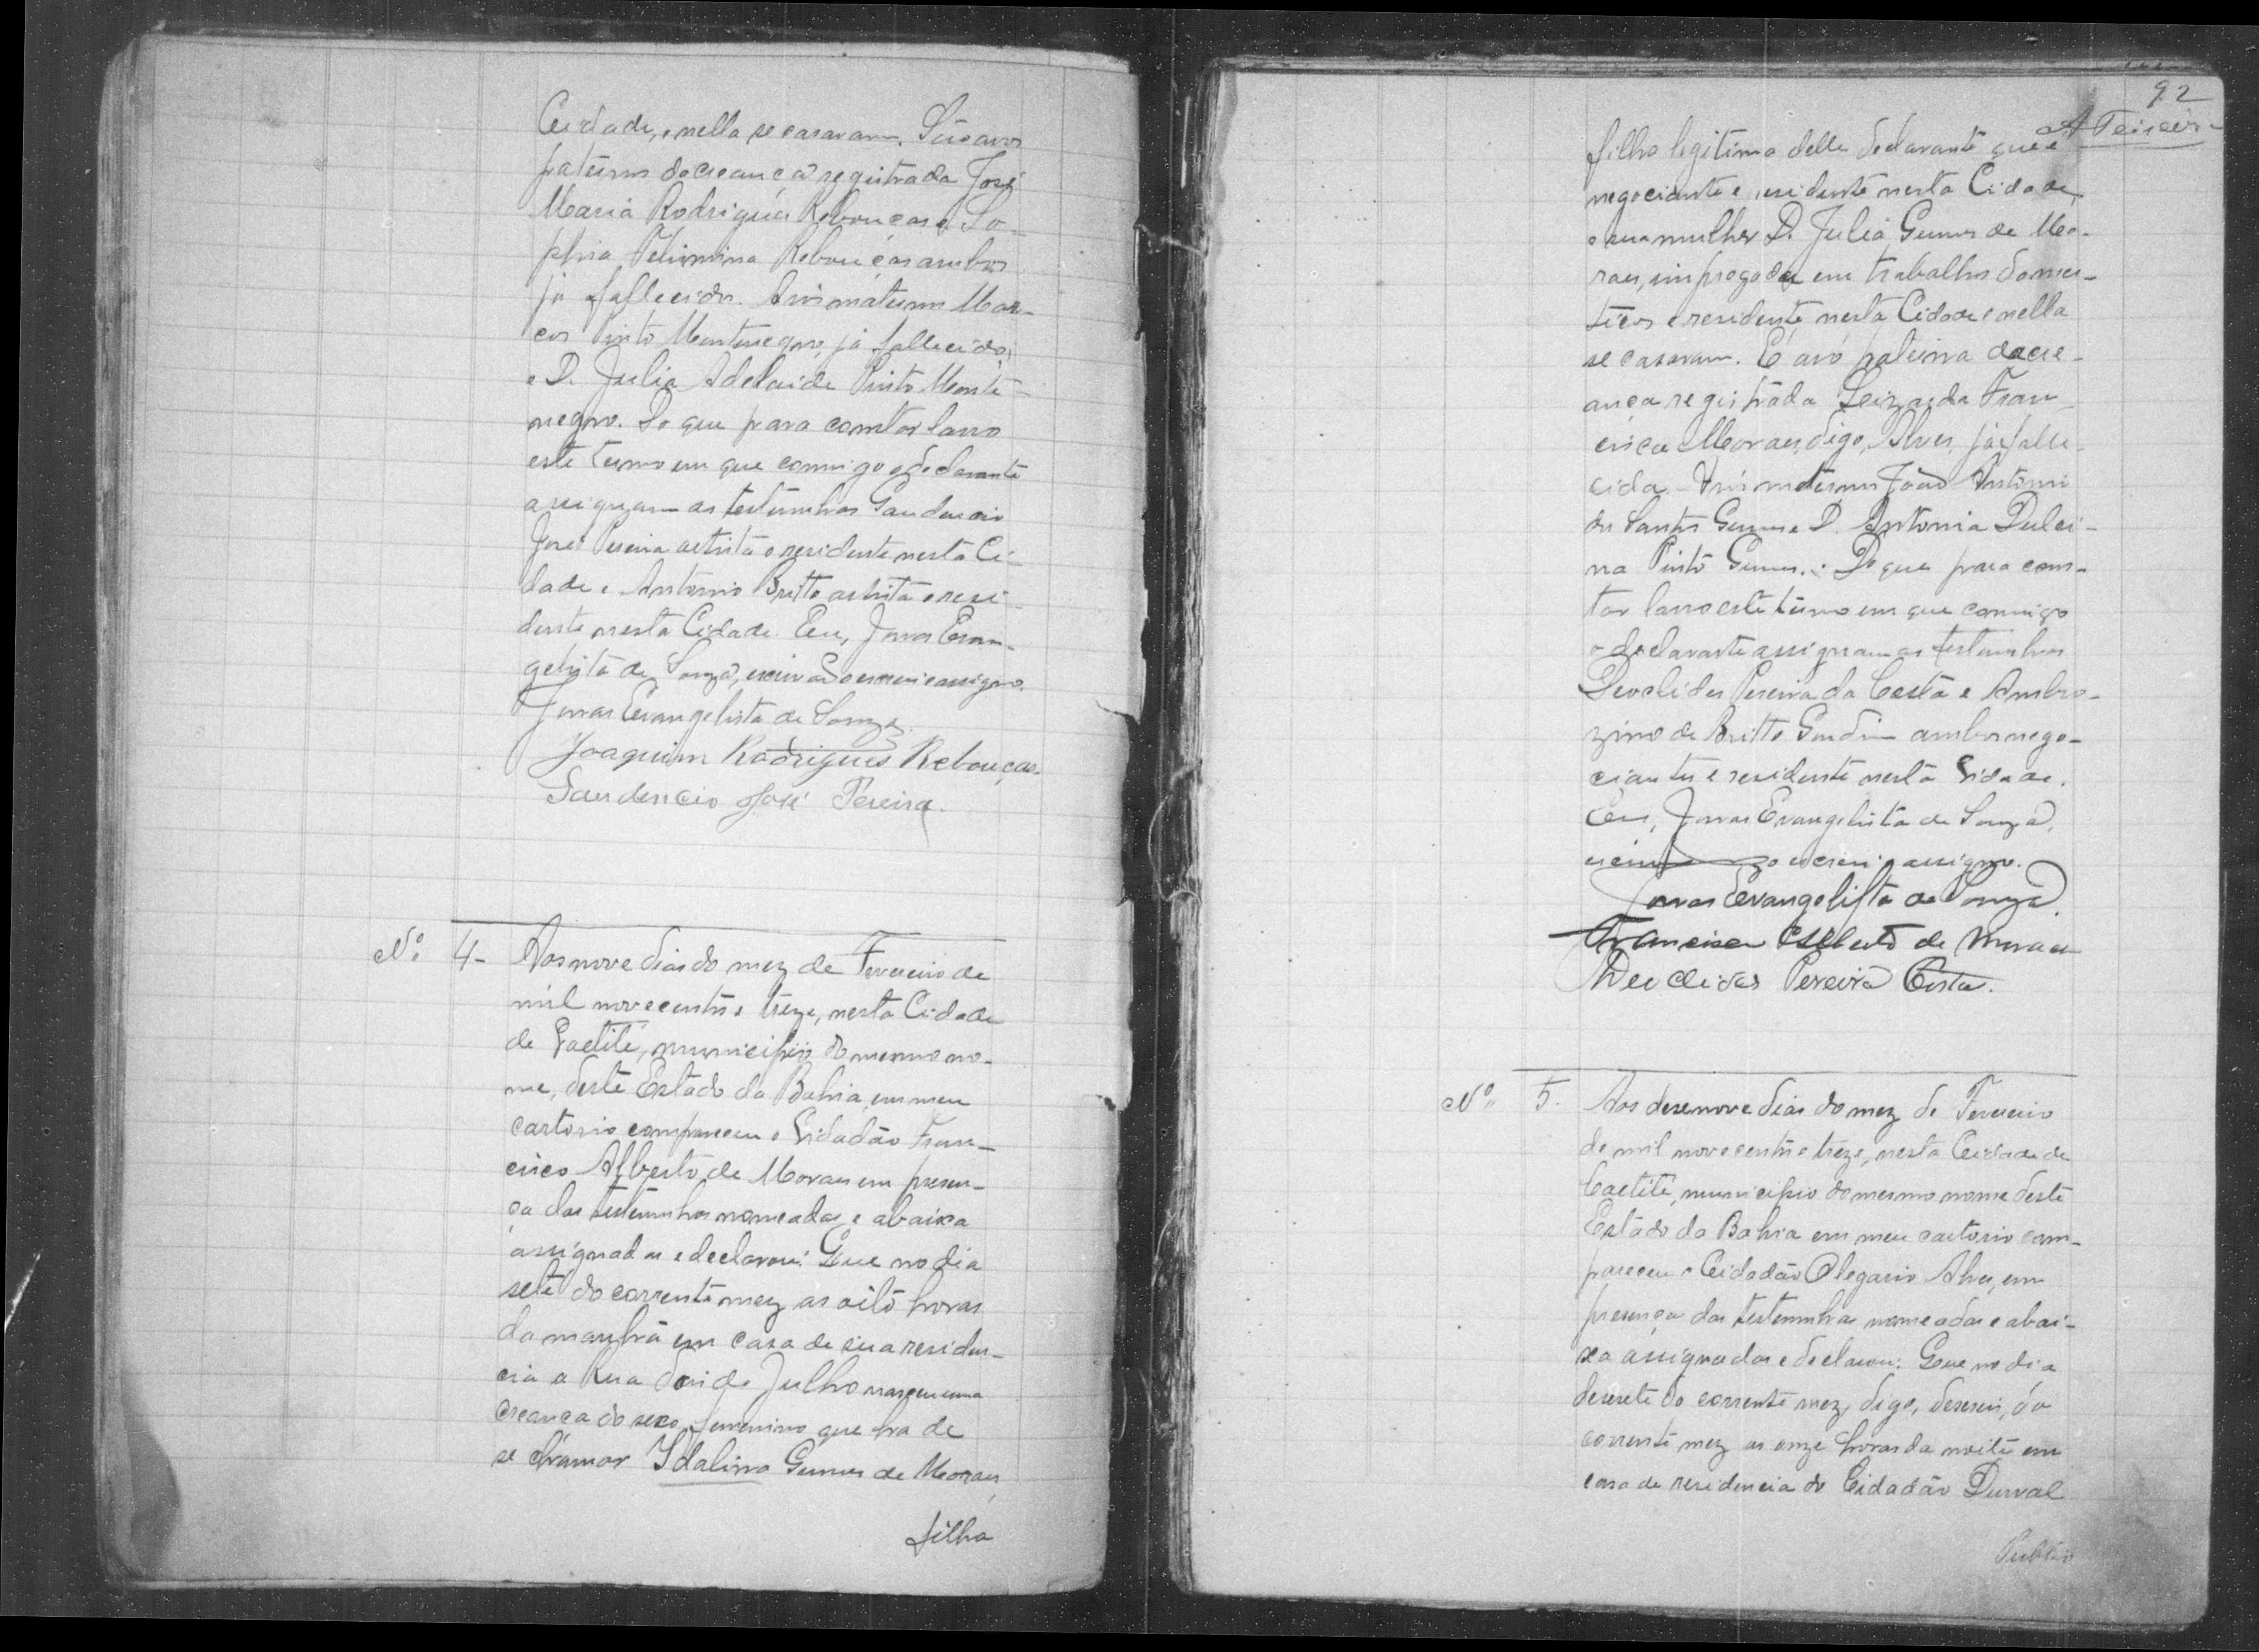 Cidade, e nella se casaram. São avos
paternos da creança registrada José
Maria Rodrigues Rebouças e So-
phia Rebouças ambos
já fallecidos. Avós maternos Mar-
cos Pinto Montenegro, já fallecido,
e D. Julia Adelaide Pinto Monte-
negro. Do que para constar lavro
este termo em que commigo e o declarante
assignam as testemunhas Gaudencio
José Pereira artista e residente nesta Ci-
dade e Antonio Britto artista e resi-
dente nesta Cidade. Eu, Jonas Evan-
gelista de Souza, escrivão escrevi e assigno.
Jonas Evangelista de Souza
Joaquim Rodrigues Rebouças.
Gaudencio José Pereira.
Nº 4- Aos nove dias do mez de Fevereiro de
mil novecentos e treze, nesta Cidade
de Caetité, municipio do mesmo no-
me, deste Estado da Bahia, em meu
cartorio compareceu o Cidadão Fran-
cisco Alberto de Moraes em presen-
ça das testemunhas nomeadas e abaixo
assignadas e declarou: Que no dia
sete do corrente mez as oito horas
da manhã em casa de sua residen-
cia a Rua Dois de Julho nasceu uma
creança do sexo femenino que ha de
se chamar Idalina Gumes de Moraes,
filha
92
A Teixeira
filha legitima delle declarante que é
negociante e residente nesta Cidade,
e sua mulher D. Julia Gumes de Mo-
raes, empregada em trabalhos domes-
ticos e residente nesta Cidade e nella
se casaram. É avó paterna da cre-
ança registrada Fran-
cisca Moraes, digo, Alves, já falle-
cida. Avós maternos João Antonio
dos Santos Gumes e D. Antonia Dulci-
na Pinto Gumes. Do que para cons-
tar lavro este termo em que commigo
o declarante assignam as testemunhas
Deoclides Pereira da Costa e Ambro-
zino de Britto Gondim ambos nego-
ciantes e residente nesta Cidade.
Eu, Jonas Evangelista de Souza,
escrivão o escrevi e assigno.
Jonas Evangelista de Souza
Francisco Alberto de Moraes
Deoclides Pereira Costa.
Nº 5. Aos desenove dias do mez de Fevereiro
de mil novecentos e treze, nesta Cidade de
Caetité, municipio do mesmo nome deste
Estado da Bahia em meu cartorio com-
pareceu o Cidadão Olegario Alves, em
presença das testemunhas nomeadas e abai-
xo assignadas e declarou: Que no dia
desesete do corrente mez, digo, deseseis, do
corrente mez as onze horas da noite em
casa de residencia do Cidadão Durval
Publio